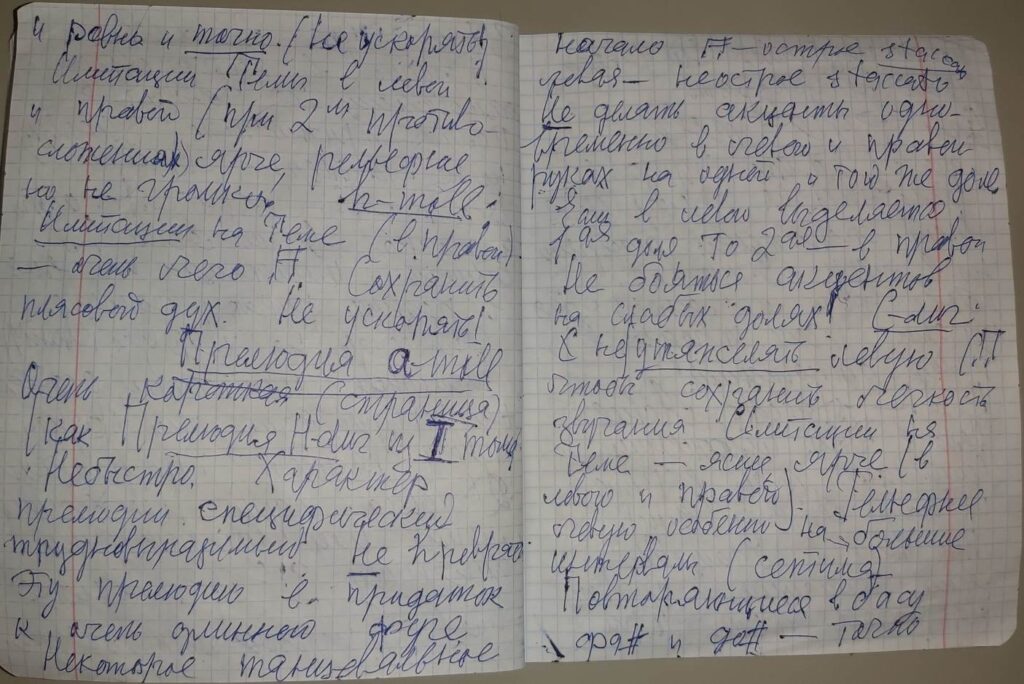 и равна и точно. (Не ускорять!)
Имитации Темы в левой
и правой (при 2ух противо-
сложениях) ярче, рельефнее
но не громко, h-moll:
Имитации на Теме (в правой)
— очень легко П. Сохранить
плясовой дух. Не ускорять!
Прелюдия a-moll
Очень короткая (страница)
(как Прелюдия H-dur из I тома.
Небыстро. Характер
прелюдии специфический
трудновыразимый Не превращ.
Эту прелюдию в придаток
к очень длинной фуге
Некоторое танцевальное
начало П — острое staccato
левая — неострое staccato
Не делать акценты одно-
временно в левой и правой
руках на одной и той же доле
Если в левой выделяется
1ая доля то 2ая — в правой
Не бояться акцентов
на слабых долях! G-dur:
Не утяжелять левую (П
чтобы сохранить легкость
звучания Имитации на
Теме — ясно, ярче (в
левой и правой). Рельефнее
левую особенно на большие
интервалы (септима)
Повторяющиеся в басу
фа# и до# — точно